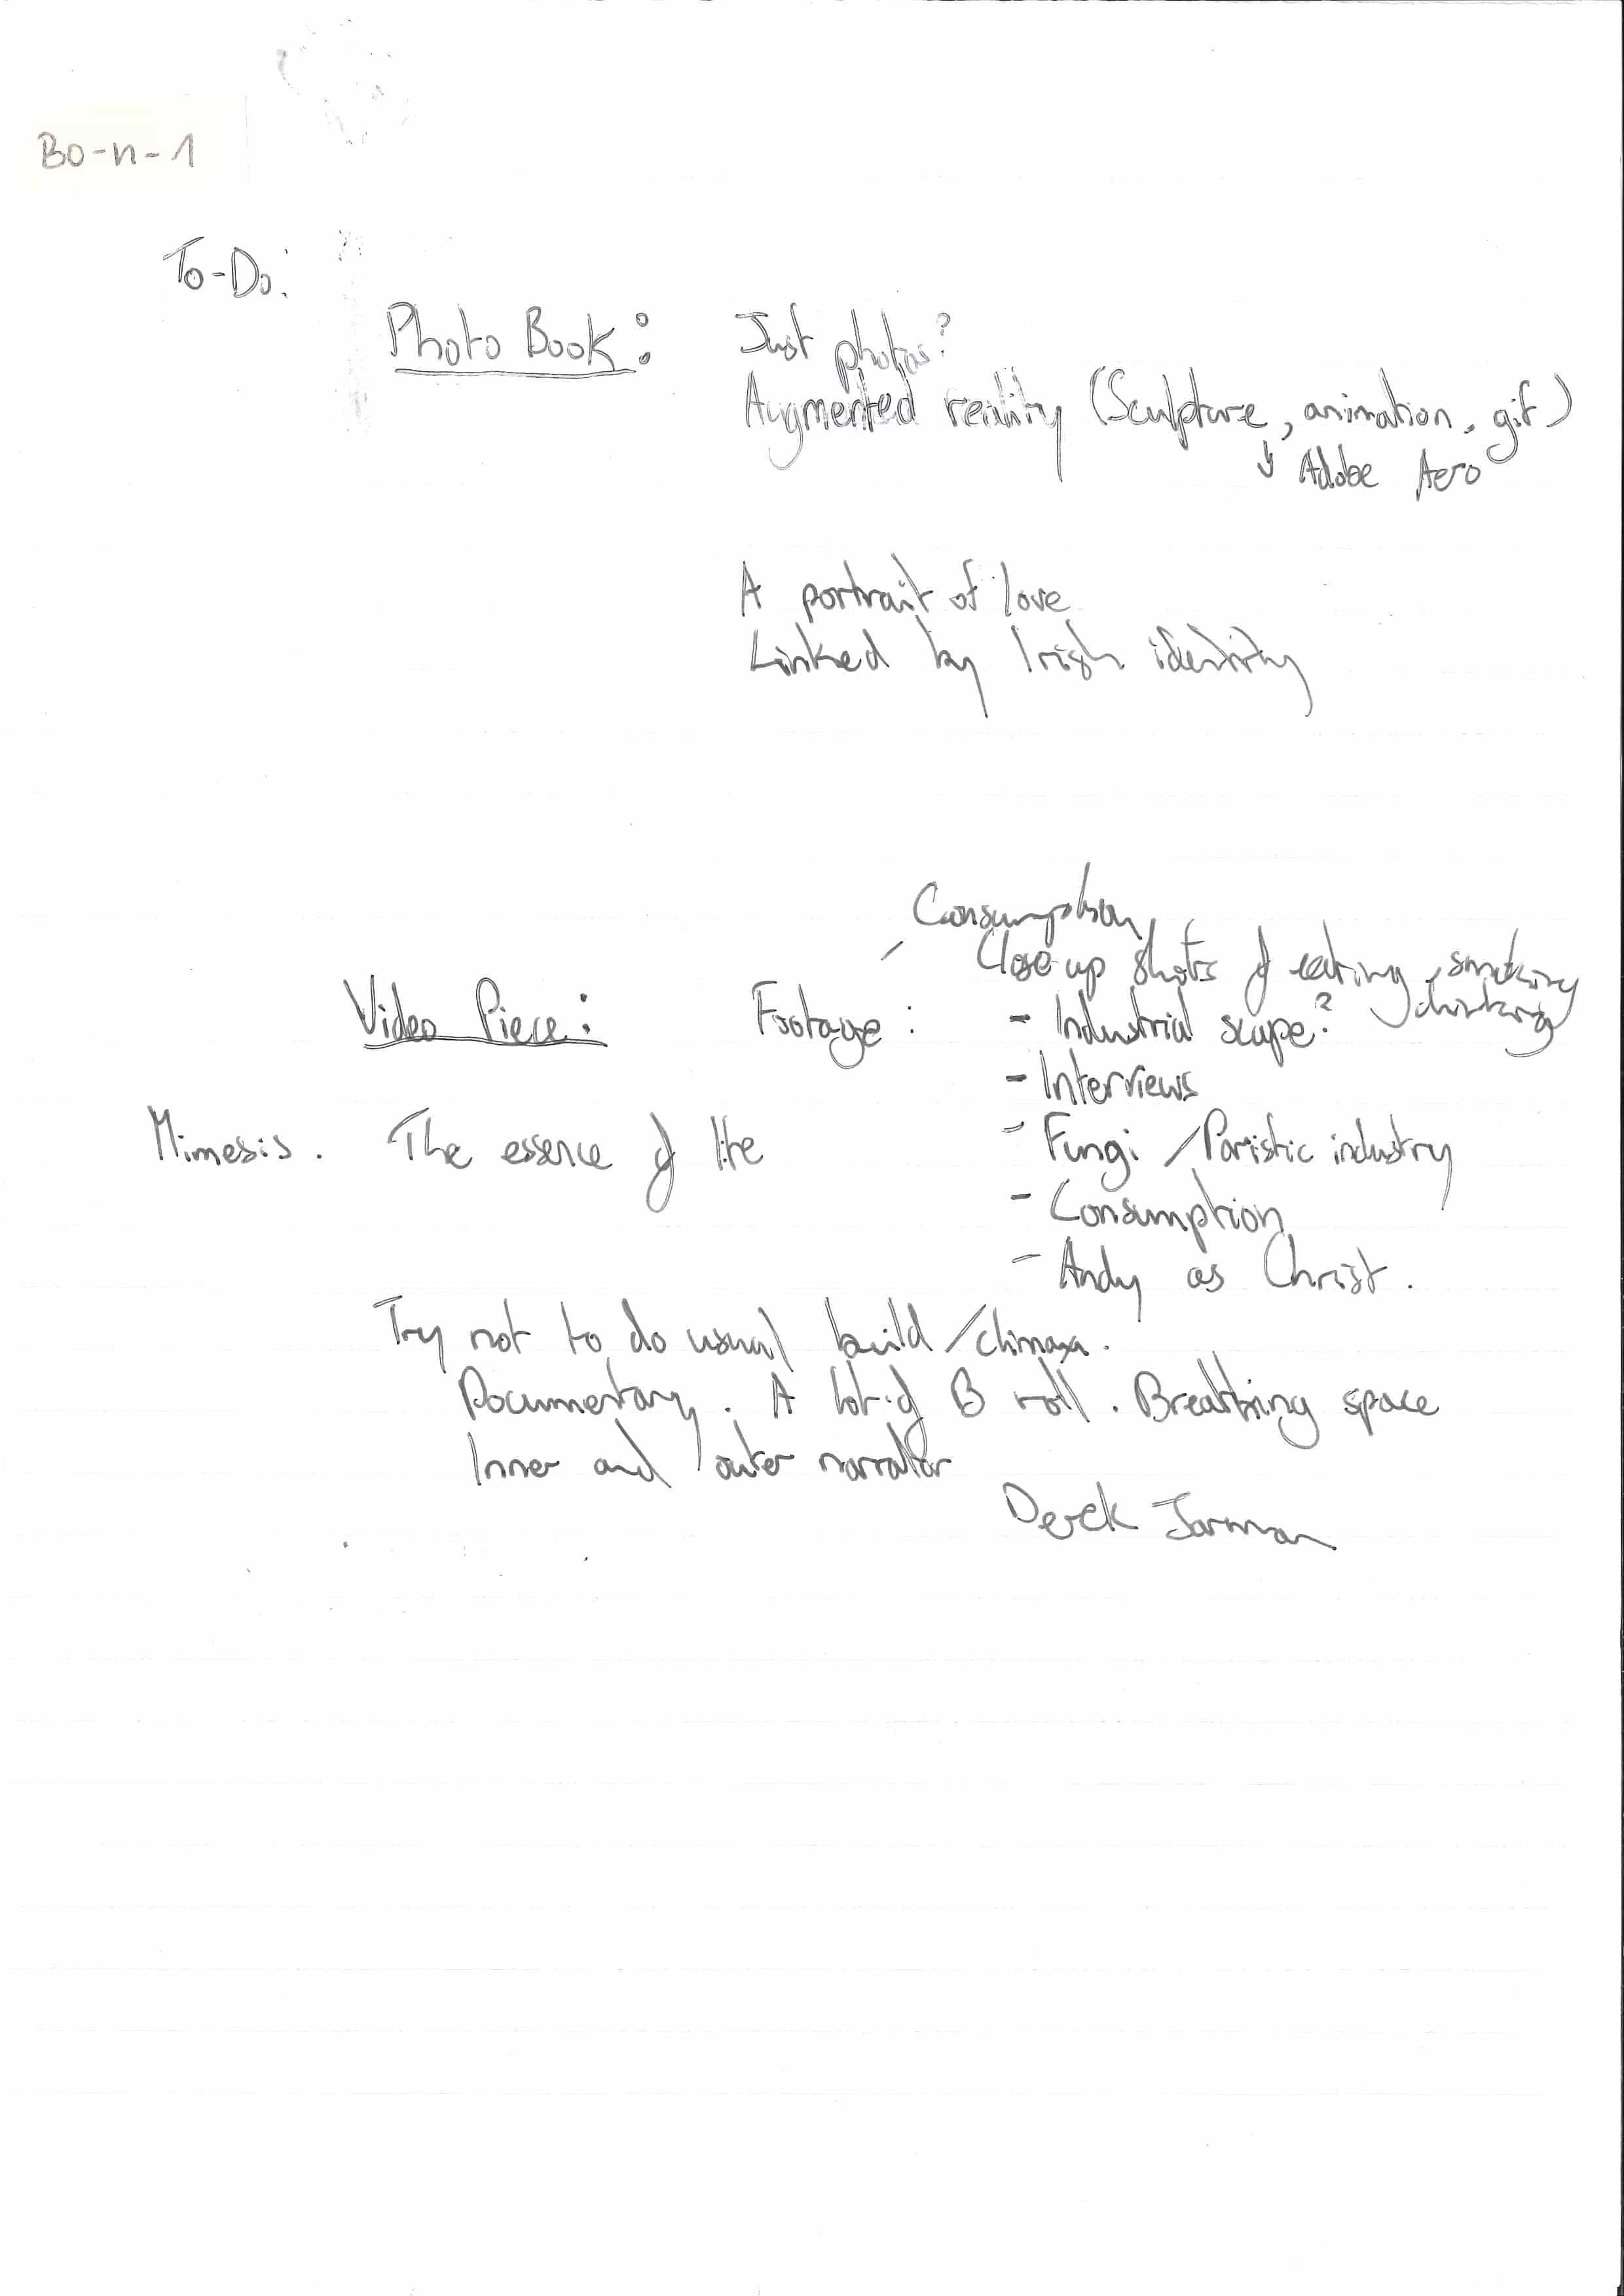 Bo-n-1
To-Do:
Photo Book: Just photos?
Augmented reality (Sculpture, animation, gif)
↓ Adobe Aero
A portrait of love
Linked by Irish identity
Consumption
Close up shots of eating, smoking
drinking
Video Piece: Footage: - Industrial scape?
- Interviews
Mimesis. The essence of the - Fungi / Paristic industry
- Consumption
- Andy as Christ.
Try not to do usual build/climax.
Documentary. A lot of B roll. Breathing space
Inner and outer narrator
Derek Jarman